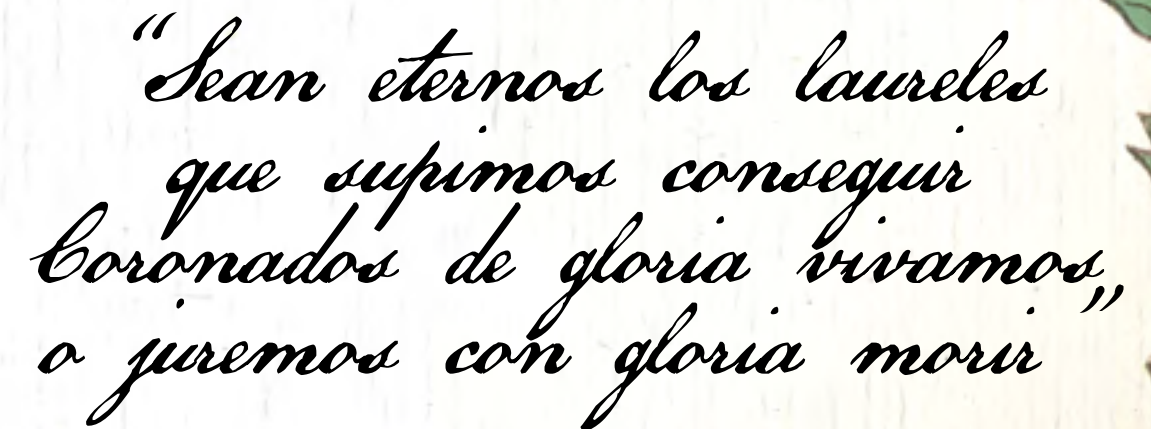 “Sean eternos los laureles
que supimos conseguir
Coronados de gloria vivamos
o juremos con gloria morir”